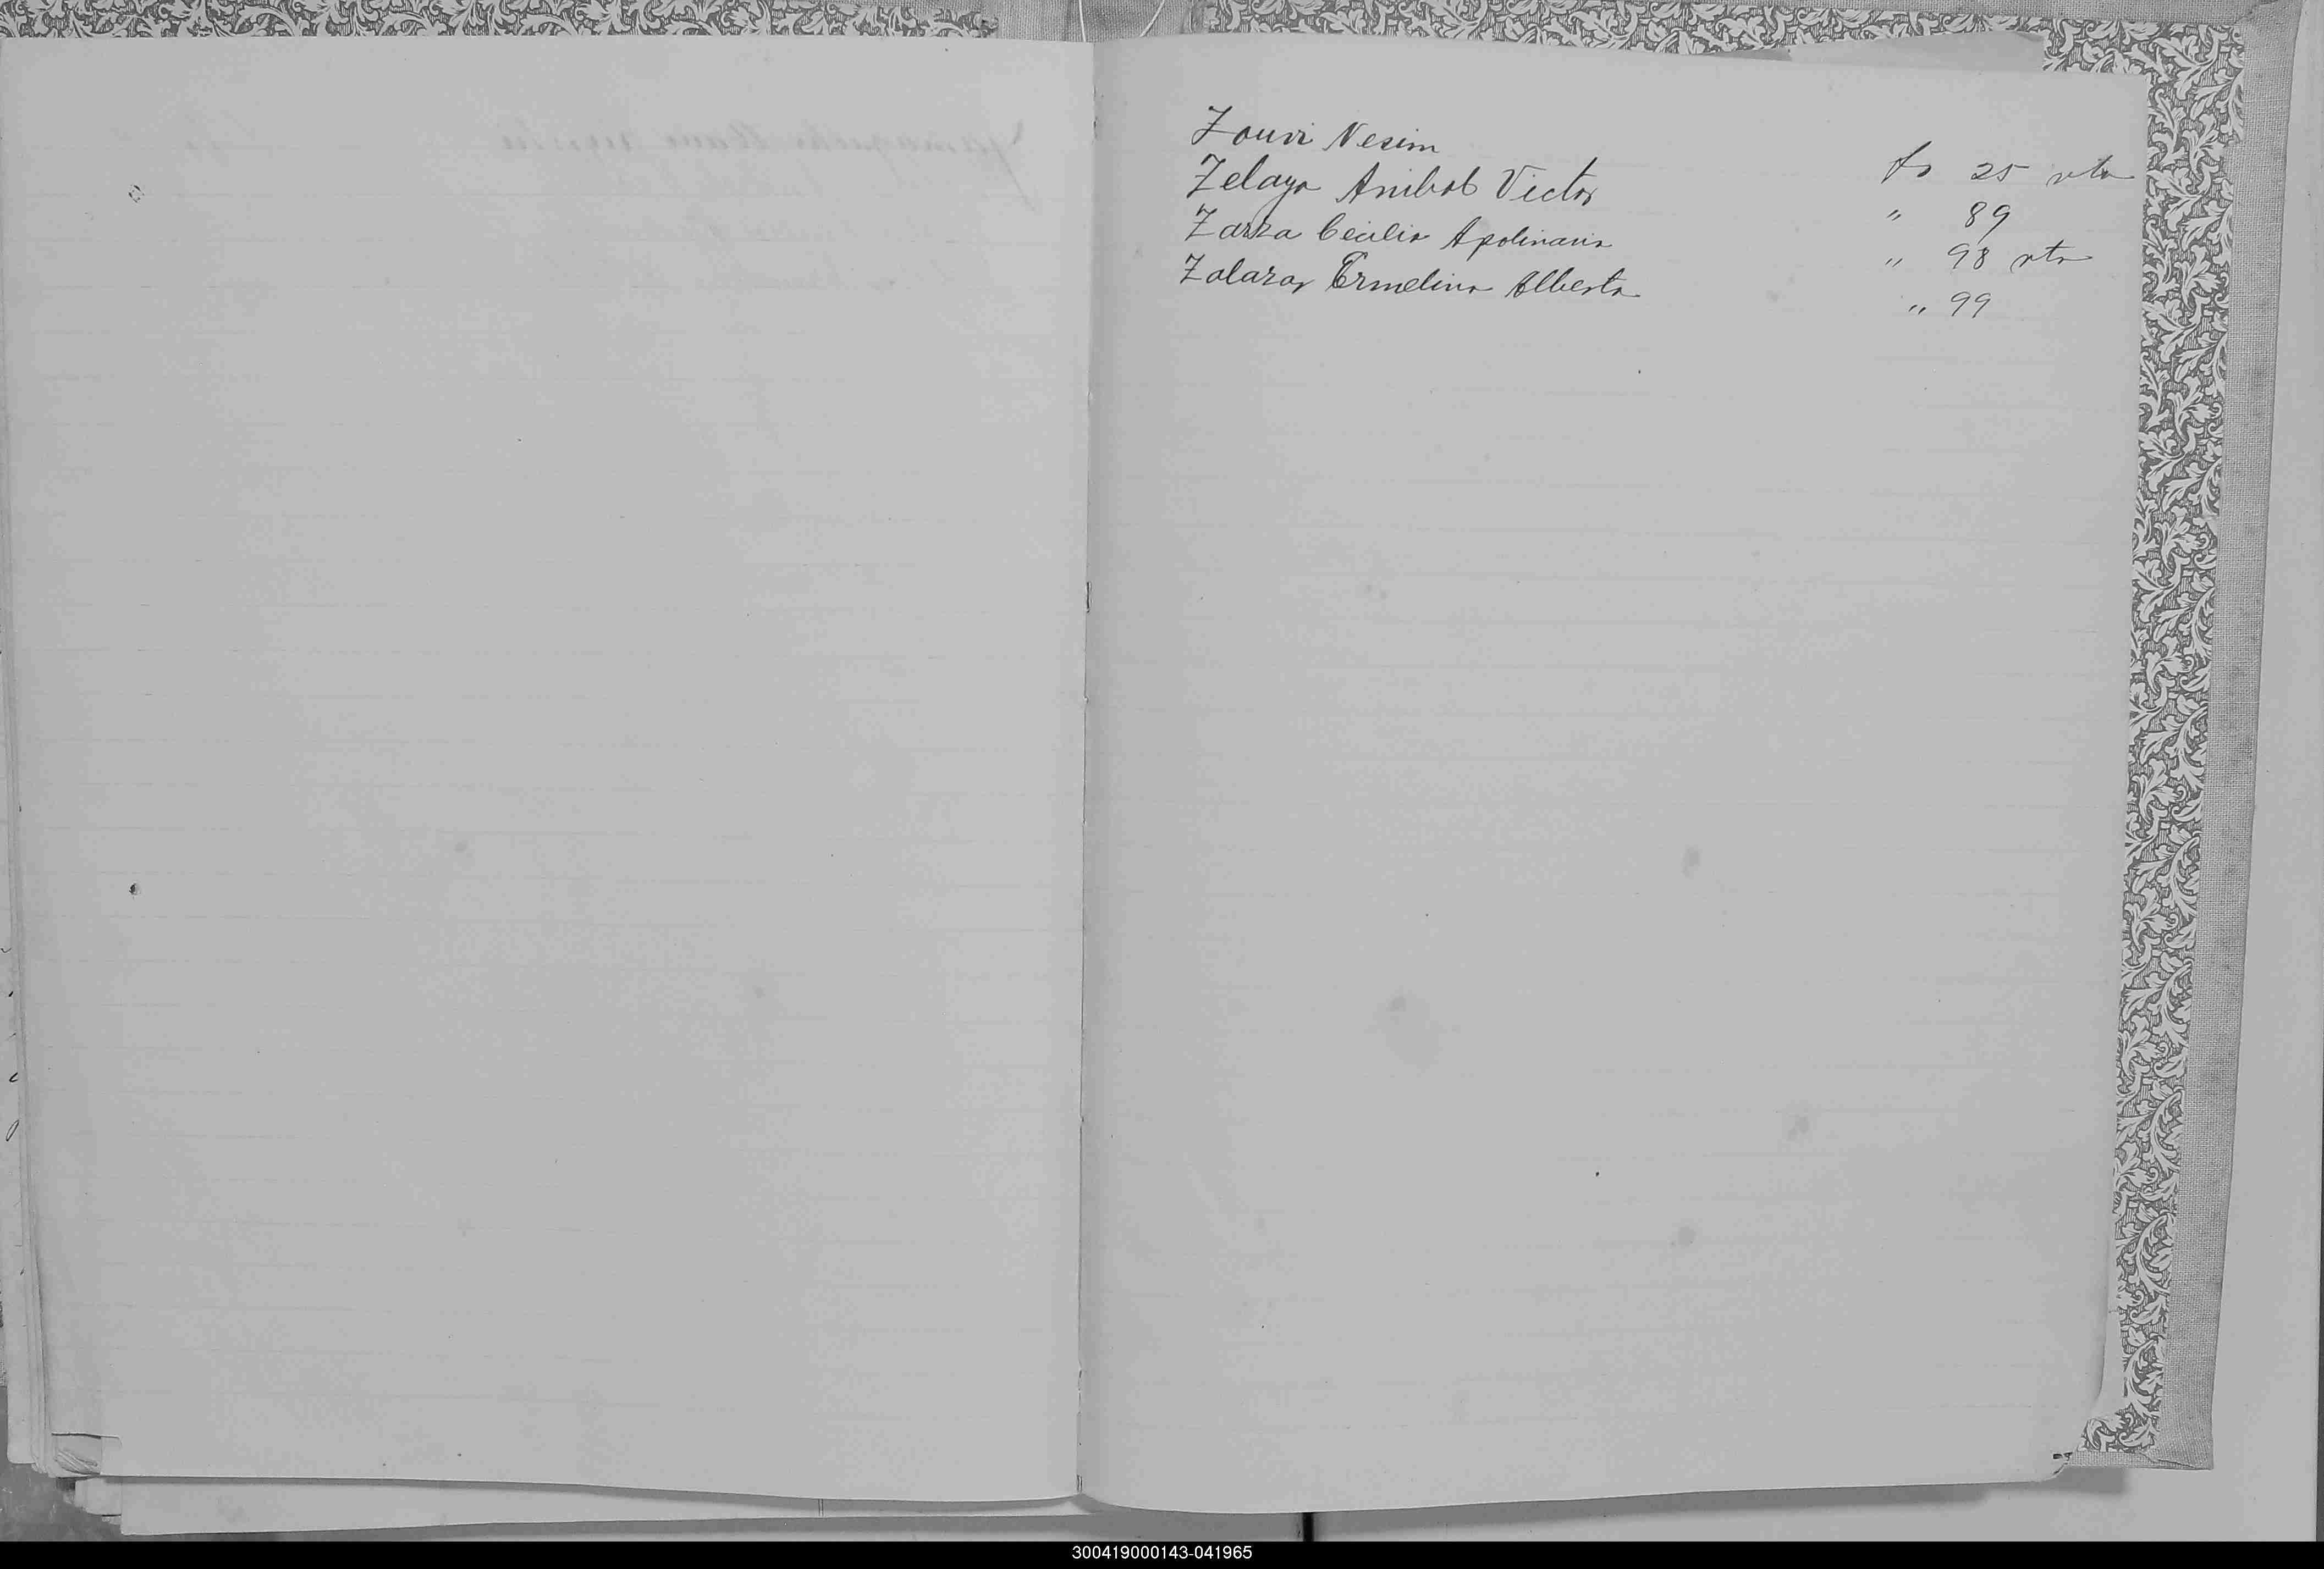 Zouvi Nesim fs 25 vta
Zelaya Anibal Victor " 89
Zarza Cecilio Apolinario " 98 vta
Zalazar Ermelina Alberta " 99
300419000143-041965